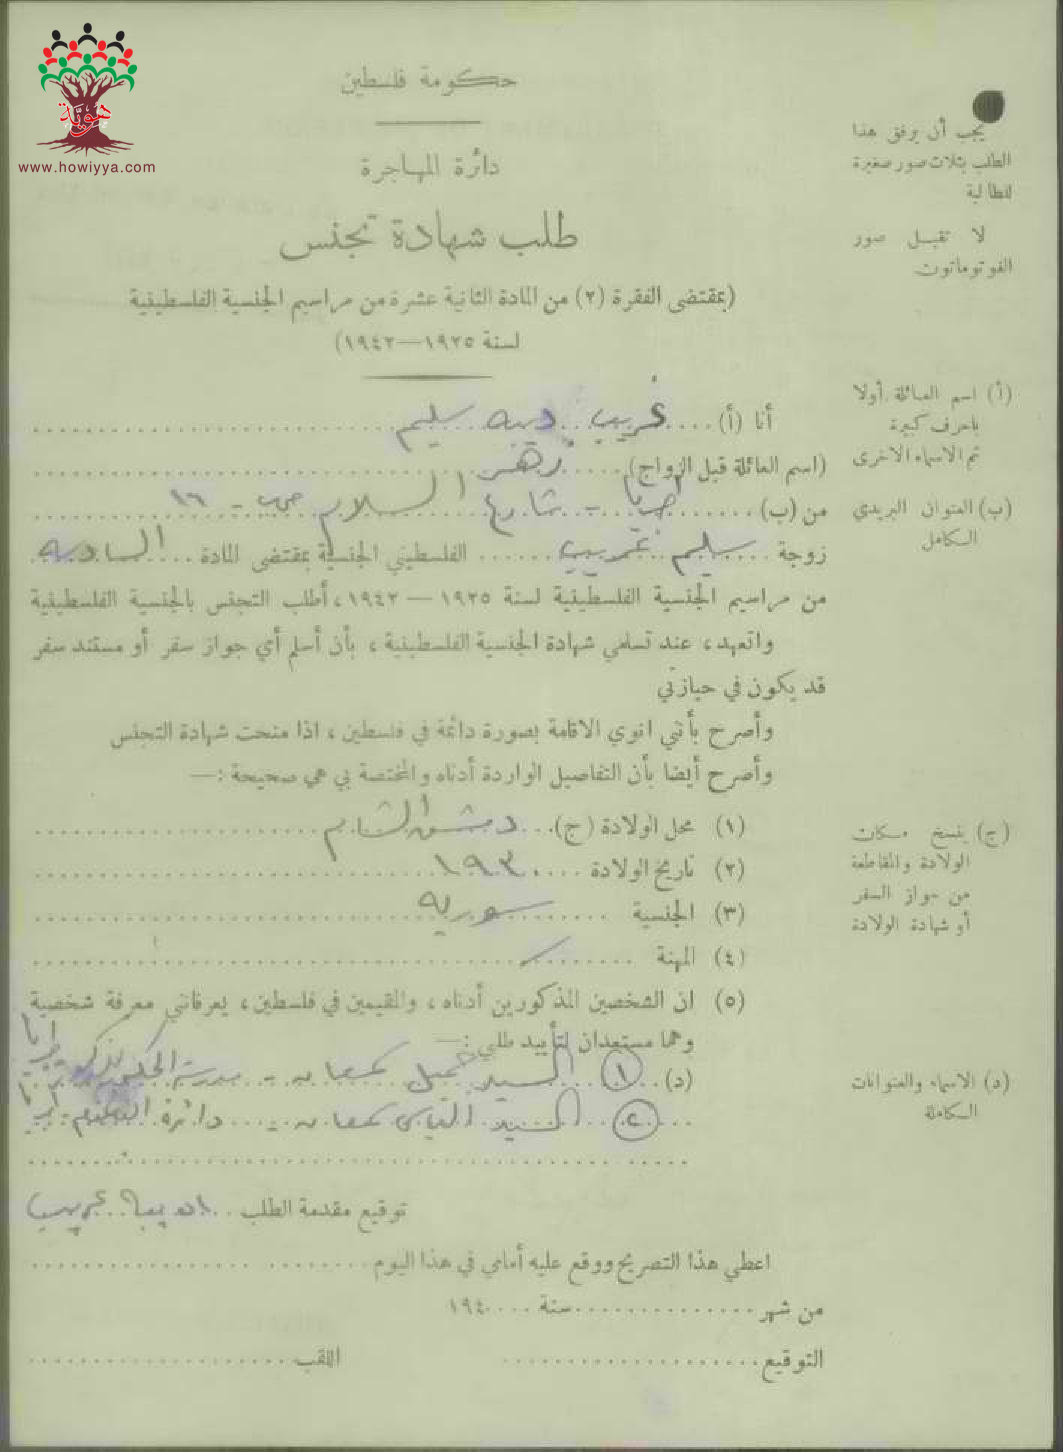 هوية
www.howiyya.com
حكومة فلسطين
دائرة المهاجرة
طلب شهادة تجنس
(بمقتضى الفقرة (٢) من المادة الثانية عشرة من مراسيم الجنسية الفلسطينية
لسنة ١٩٢٥—١٩٤٢)
يجب أن يرفق هذا
الطلب بثلاث صور صغيرة
للطالبة
لا تقبل صور
الفوتوماتون
(أ) اسم العائلة أولا
باحرف كبيرة
ثم الاسماء الاخرى
أنا (أ) .... غريب .. سليم
(اسم العائلة قبل الزواج) ..... زهر
(ب) العنوان البريدي
الكامل
من (ب) ........ - شارع السلام ص.ب - ١٦
زوجة .... سليم غريب ...... الفلسطيني الجنسية بمقتضى المادة .. السادسه
من مراسيم الجنسية الفلسطينية لسنة ١٩٢٥ — ١٩٤٢، أطلب التجنس بالجنسية الفلسطينية
واتعهد، عند تسلمي شهادة الجنسية الفلسطينية، بأن أسلم أي جواز سفر أو مستند سفر
قد يكون في حيازتي
وأصرح بأنني انوي الاقامة بصورة دائمة في فلسطين، اذا منحت شهادة التجنس
وأصرح أيضا بأن التفاصيل الواردة أدناه والمختصة بي هي صحيحة :—
(١) محل الولادة (ج)... دمشق الشام
(ج) ينسخ مكان
الولادة والمقاطعة
من جواز السفر
أو شهادة الولادة
(٢) تاريخ الولادة ..... ١٩٣٠
(٣) الجنسية ....... سوريه
(٤) المهنة ......
(٥) ان الشخصين المذكورين أدناه، والمقيمين في فلسطين، يعرفانني معرفة شخصية
وهما مستعدان لتأييد طلبي :—
(د) الاسماء والعنوانات
الكاملة
(د) .. ١ .. السيد جميل كنعان - مدرسة
٢ .. السيد كنعان .... دائرة
توقيع مقدمة الطلب .. غريب
اعطي هذا التصريح ووقع عليه أمامي في هذا اليوم
من شهر ............... سنة .... ١٩٤
التوقيع .................... اللقب ....................